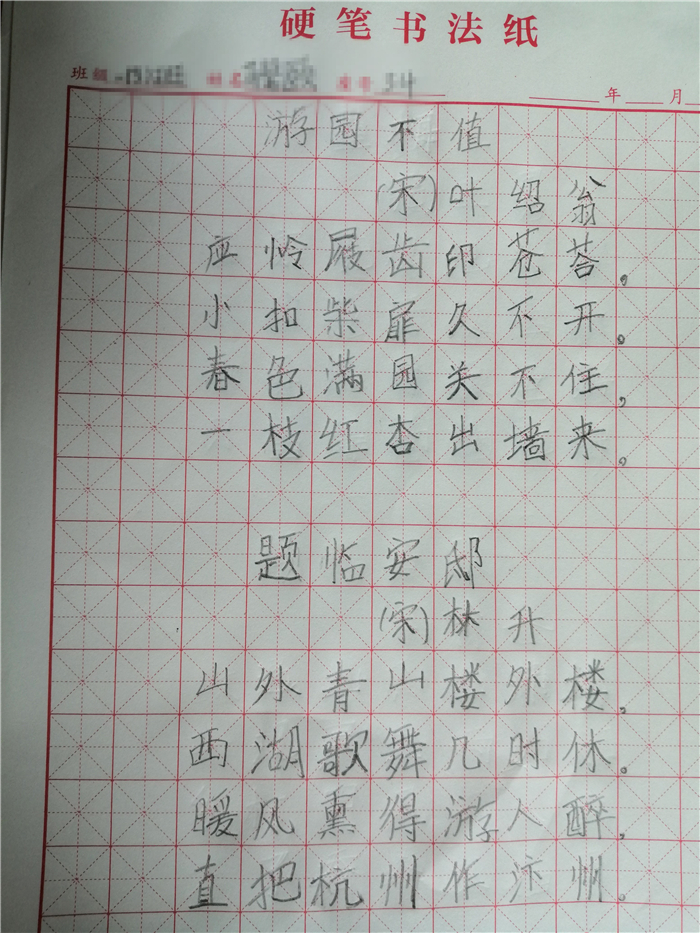 硬笔书法纸
班级 年 月
游园不值
(宋)叶绍翁
应怜屐齿印苍苔。
小扣柴扉久不开。
春色满园关不住,
一枝红杏出墙来。
题临安邸
(宋)林升
山外青山楼外楼,
西湖歌舞几时休。
暖风熏得游人醉,
直把杭州作汴州。